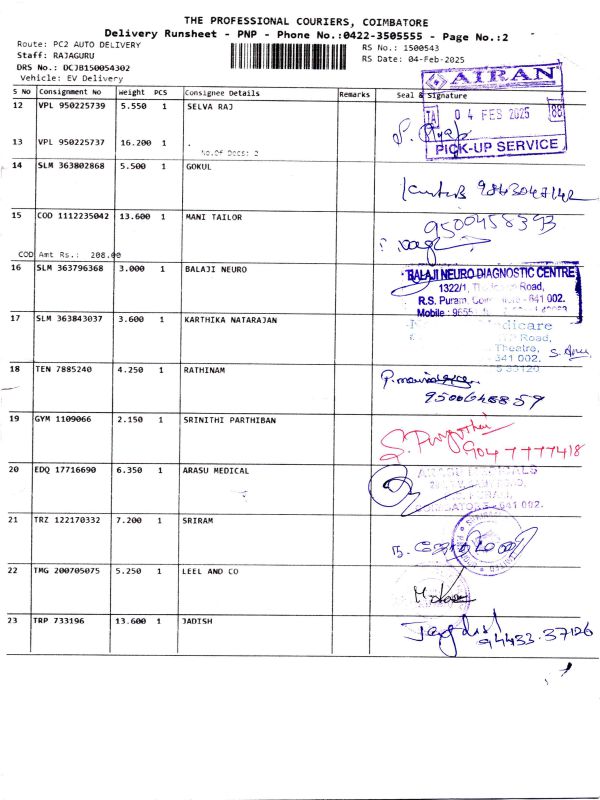 THE PROFESSIONAL COURIERS, COIMBATORE
Delivery Runsheet - PNP - Phone No.:0422-3505555 - Page No.:2
Route: PC2 AUTO DELIVERY
Staff: RAJAGURU
DRS No.: DCJB150054302
Vehicle: EV Delivery
RS No.: 1500543
RS Date: 04-Feb-2025
S No Consignment No Weight PCS Consignee Details Remarks Seal & Signature
12 VPL 950225739 5.550 1 SELVA RAJ
AIRAN
TA 04 FEB 2025 88
PICK-UP SERVICE
13 VPL 950225737 16.200 1 .
No.Of Docs: 2
14 SLM 363802868 5.500 1 GOKUL
15 COD 1112235042 13.600 1 MANI TAILOR
9500458393
COD Amt Rs.: 208.00
16 SLM 363796368 3.000 1 BALAJI NEURO
BALAJI NEURO DIAGNOSTIC CENTRE
1322/1, Road,
R.S. Puram, - 641 002.
Mobile :
17 SLM 363843037 3.600 1 KARTHIKA NATARAJAN
Road,
Theatre,
641 002.
18 TEN 7885240 4.250 1 RATHINAM
9500648859
19 GYM 1109066 2.150 1 SRINITHI PARTHIBAN
9047777418
20 EDQ 17716690 6.350 1 ARASU MEDICAL
641 002.
21 TRZ 122170332 7.200 1 SRIRAM
22 TMG 200705075 5.250 1 LEEL AND CO
23 TRP 733196 13.600 1 JADISH
94433.37126